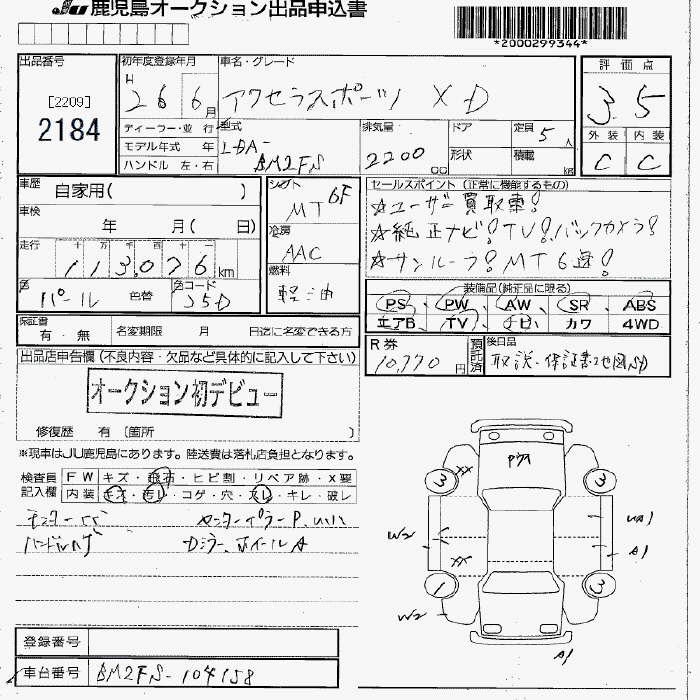 JU 鹿児島オークション出品申込書
*2000299344*
出品番号
[2209]
2184
初年度登録年月
H 26 6月
ディーラー・並行
モデル年式 年
ハンドル 左・右
車名・グレード
アクセラスポーツ XD
型式
LDA-
BM2FS
排気量
2200 cc
ドア
形状
定員 5人
積載 kg
評価点
3.5
外装 内装
C C
車歴 自家用( )
車検 年 月( 日)
走行 十万千百十一
113,076 km
色 パール 色替
色コード 25D
シフト 6F
MT
冷房
AAC
燃料
軽油
セールスポイント (正常に機能するもの)
☆ユーザー買取車!
☆純正ナビ!TV!バックカメラ!
☆サンルーフ!MT6速!
装備品(純正品に限る)
PS、PW、AW、SR、ABS
エアB TV、ナビ、カワ 4WD
保証書 有・無
名変期限 月 日迄に名変できる方
R券 10,770円
預託済
後日品 取説・保証書・地図SD
出品店申告欄(不良内容・欠品など具体的に記入して下さい)
オークション初デビュー
修復歴 有 〔箇所 〕
※現車はJU鹿児島にあります。陸送費は落札店負担となります。
検査員記入欄
FW キズ・飛石・ヒビ割・リペア跡・X要
内装 キズ・汚レ・コゲ・穴・スレ・キレ・破レ
センターピラーP、
ハンドルハゲ Dミラー、ホイールA
3 3 1 3
XX
XX
W2
W2
A1
A1
登録番号
車台番号 BM2FS-104158